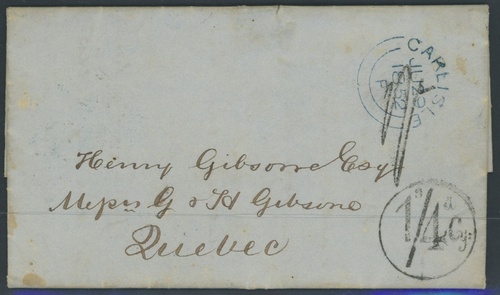 CARLISLE
JU 20
1852
P
Henry Gibsone Esqr
Messrs G & H Gibsone
Quebec
s d
1/4 Cy.